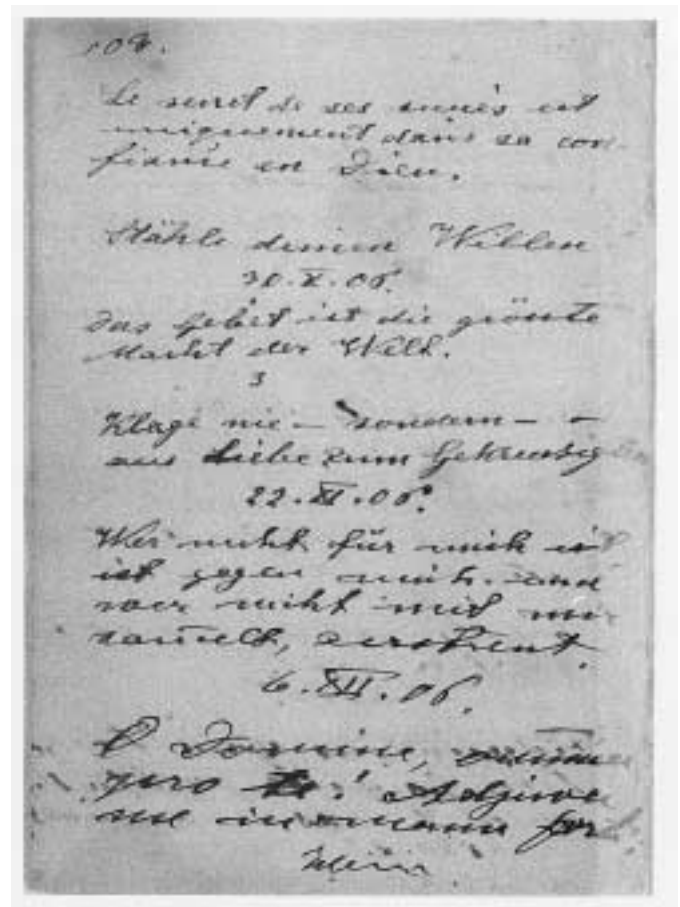 108.
Le secret de ses succès est
uniquement dans sa con-
fiance en Dieu.
Stähle deinen Willen
30.X.06.
Das Gebet ist die grösste
Macht der Welt.
3
Klage nie – sondern –
aus Liebe zum Gekreuzig
22.XI.06.
Wer nicht für mich ist
ist gegen mich. und
wer nicht mit mir
sam̄elt, zerstreut.
6.XII.06.
O Domine,
pro te! Adjuva
me